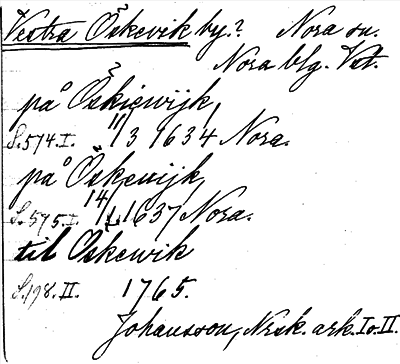 Vestra Öskevik by? Nora sn.
Nora blg. Vst.
på Öskiewijk,
S. 574. I. 11/3 1634 Nora.
på Öskewijk,
S. 575. I. 14/ 1637 Nora.
til Oskewik
S. 198. II. 1765.
Johansson, Nrsk. ark. I o. II